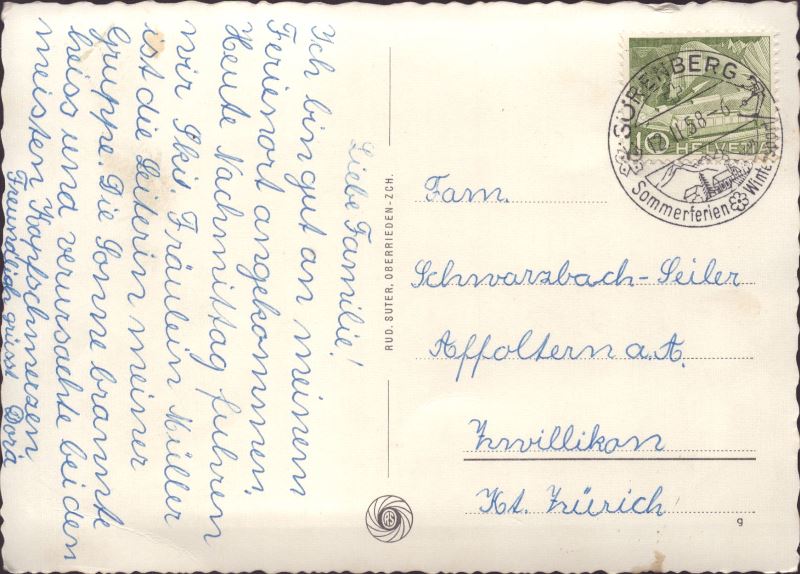 Liebe Familie!
Ich bin gut an meinem
Ferienort angekommen.
Heute Nachmittag fuhren
wir Ski. Fräulein Müller
ist die Leiterin meiner
Gruppe. Die Sonne brannte
heiss und verursachte bei den
meisten Kopfschmerzen
Freundlich grüsst Dora
RUD. SUTER, OBERRIEDEN-ZCH.
SÖRENBERG
12.II.58-6
Sommerferien
10
HELVETIA
Fam.
Schwarzbach-Seiler
Affoltern a.A.
Zwillikon
Kt. Zürich
9